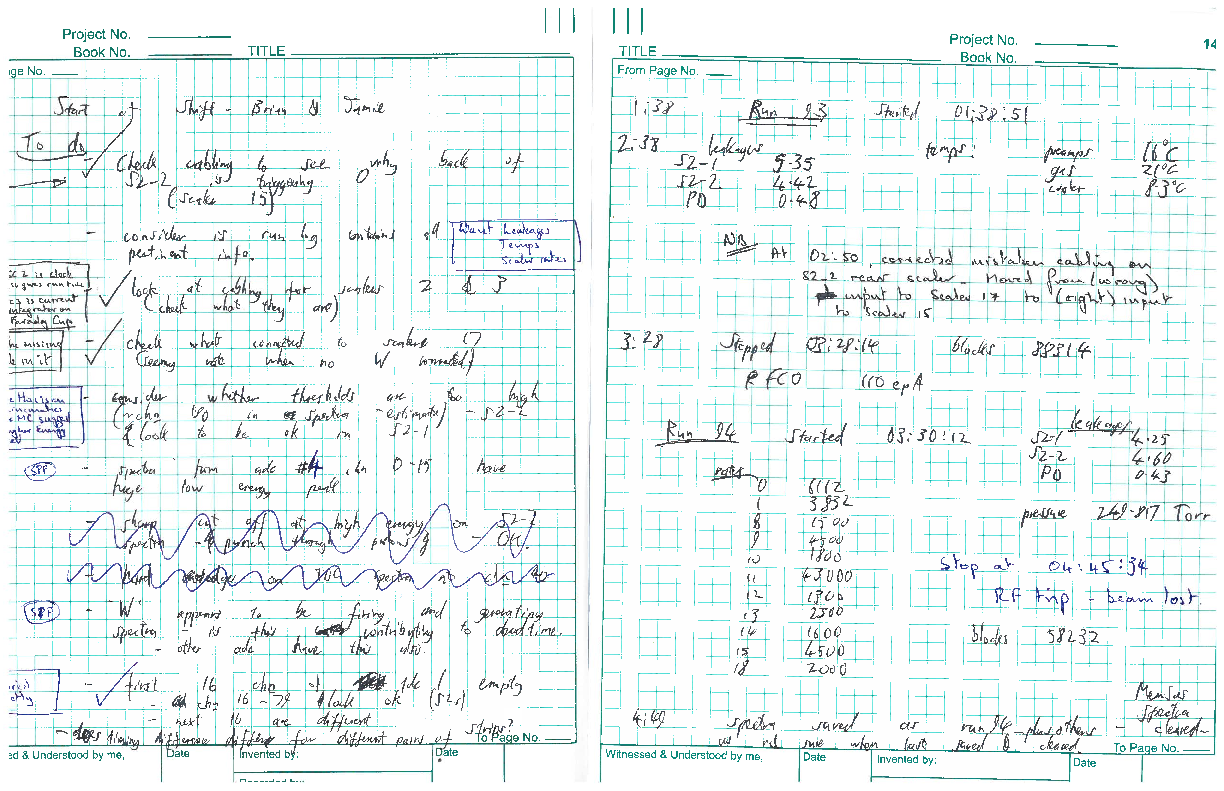 Project No.
Book No.
TITLE
ge No.
Start of Shift - Brian & Jamie
To do
Check cabling to see why back of
S2-2 is triggering
(scaler 15)
- consider is run log contains all
pertinent info.
Want Leakages
Temps
Scaler rates
2 is clock
gives run time
3 is current
integrator on
Faraday Cup
look at cabling for scalers 2 & 3
(check what they are)
missing
in it
- check what connected to scaler 17
(seeing rate when no W connected)
- consider whether thresholds are too high
in spectra - estimate) - S2-2
& look to be ok in S2-1
suggest
higher energy
SPP
- spectra from adc #4, chn 0-15 have
huge low energy peak
- sharp cut off at high energy on S2-2
spectra - punch through protons - OK.
SPP
- W' appears to be firing and generating
spectra - is this contributing to dead time.
- other adc have this also
- first 16 chn of adc (S2s) empty
- chn 16 - 32 look ok
- next 16 are different
- timing difference for different pairs of strips?
To Page No.
ed & Understood by me,
Date
Invented by:
Date
Recorded by
TITLE
Project No.
Book No.
14
From Page No.
1:38 Run 93 Started 01:38:51
2:38 leakages temps: preamps 16°C
S2-1 5.35 gas 21°C
S2-2 4.42 cooler 8.3°C
PD 0.48
NB At 02:50, corrected mistaken cabling on
S2-2 rear scaler. Moved from (wrong)
input to scaler 17 to (right) input
to scaler 15
3:28 Stopped 03:28:14 blocks 88314
RFCO 110 epA
Run 94 Started 03:30:12
Leakages
S2-1 4.25
S2-2 4.60
PD 0.43
rates
0 6112
1 3832
8 1500
9 4500
10 1800
11 43000
12 1300
13 2500
14 1600
15 4500
18 2000
pressure 249.817 Torr
Stop at 04:45:34
RF trip - beam lost.
blocks 58232
4:49 spectra saved as run 94 - plus others
not sure when last saved & cleared.
- Memsas
Spectra
cleared -
Witnessed & Understood by me,
Date
Invented by:
Date
To Page No.